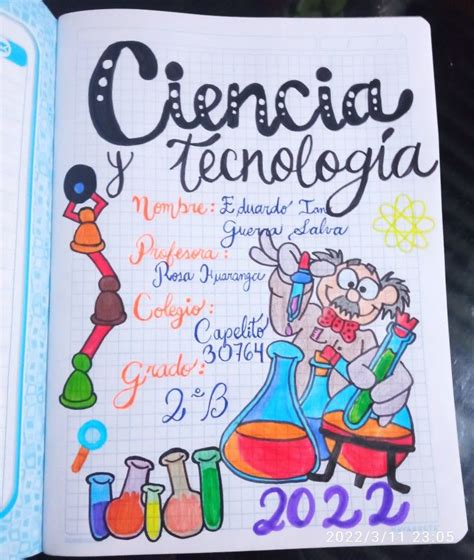 Ciencia
y Tecnología
Nombre: Eduardo Ian
Guerra Salva
Profesora:
Rosa Huaranga
Colegio:
Capelito
30764
Grado:
2º B
2022
2022/3/11 23:05